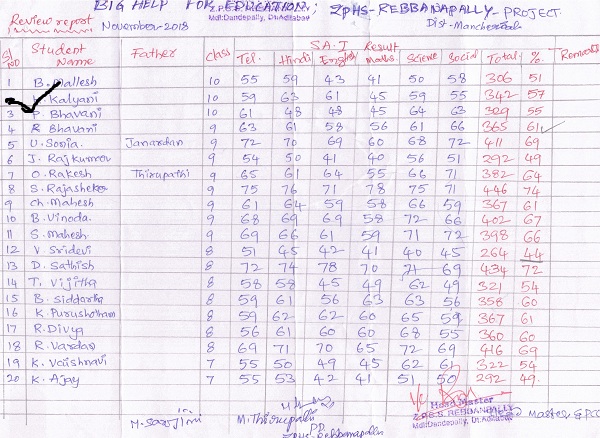 BIG HELP FOR EDUCATION; ZPHS-REBBANAPALLY-PROJECT
Review report November-2018 Mdl:Dandepally, Dt.Adilabad Dist-Mancherial
SA-I Result
Sl No Student Name Father Class Tel. Hindi English Maths Science Social Total % Remarks
1 B. Mallesh 10 55 59 43 41 50 58 306 51
Kalyani 10 59 63 61 45 59 55 342 57
3 P. Bhavani 10 61 48 48 45 64 63 329 55
4 R Bhavani 9 63 61 58 56 61 66 365 61
5 U. Sonia Janardan 9 72 70 69 60 68 72 411 69
6 J. Rajkumar 9 54 50 41 40 56 51 292 49
7 O. Rakesh Thirupathi 9 65 61 64 55 66 71 382 64
8 S. Rajasheker 9 75 76 71 78 75 71 446 74
9 Ch. Mahesh 9 61 64 59 58 66 59 367 61
10 B. Vinoda 9 68 69 69 58 72 66 402 67
11 S. Mahesh 9 69 66 61 59 71 72 398 66
12 V. Sridevi 8 51 45 42 41 40 45 264 44
13 D. Sathish 8 72 74 78 70 71 69 434 72
14 T. Vijitha 8 58 58 45 49 62 49 321 54
15 B. Siddartha 8 59 61 56 63 63 56 358 60
16 K. Purushotham 8 59 62 62 60 65 59 367 61
17 R. Divya 8 56 61 60 60 68 55 360 60
18 R. Vardan 8 69 71 70 65 72 69 416 69
19 K. Vaishnavi 7 55 50 49 45 62 61 322 54
20 K. Ajay 7 55 53 42 41 51 50 292 49
M. Sarojini M. Thirupathi Head Master
Z.P.H.S. REBBANAPALLY
Mdl:Dandepally, Dt.Adilabad